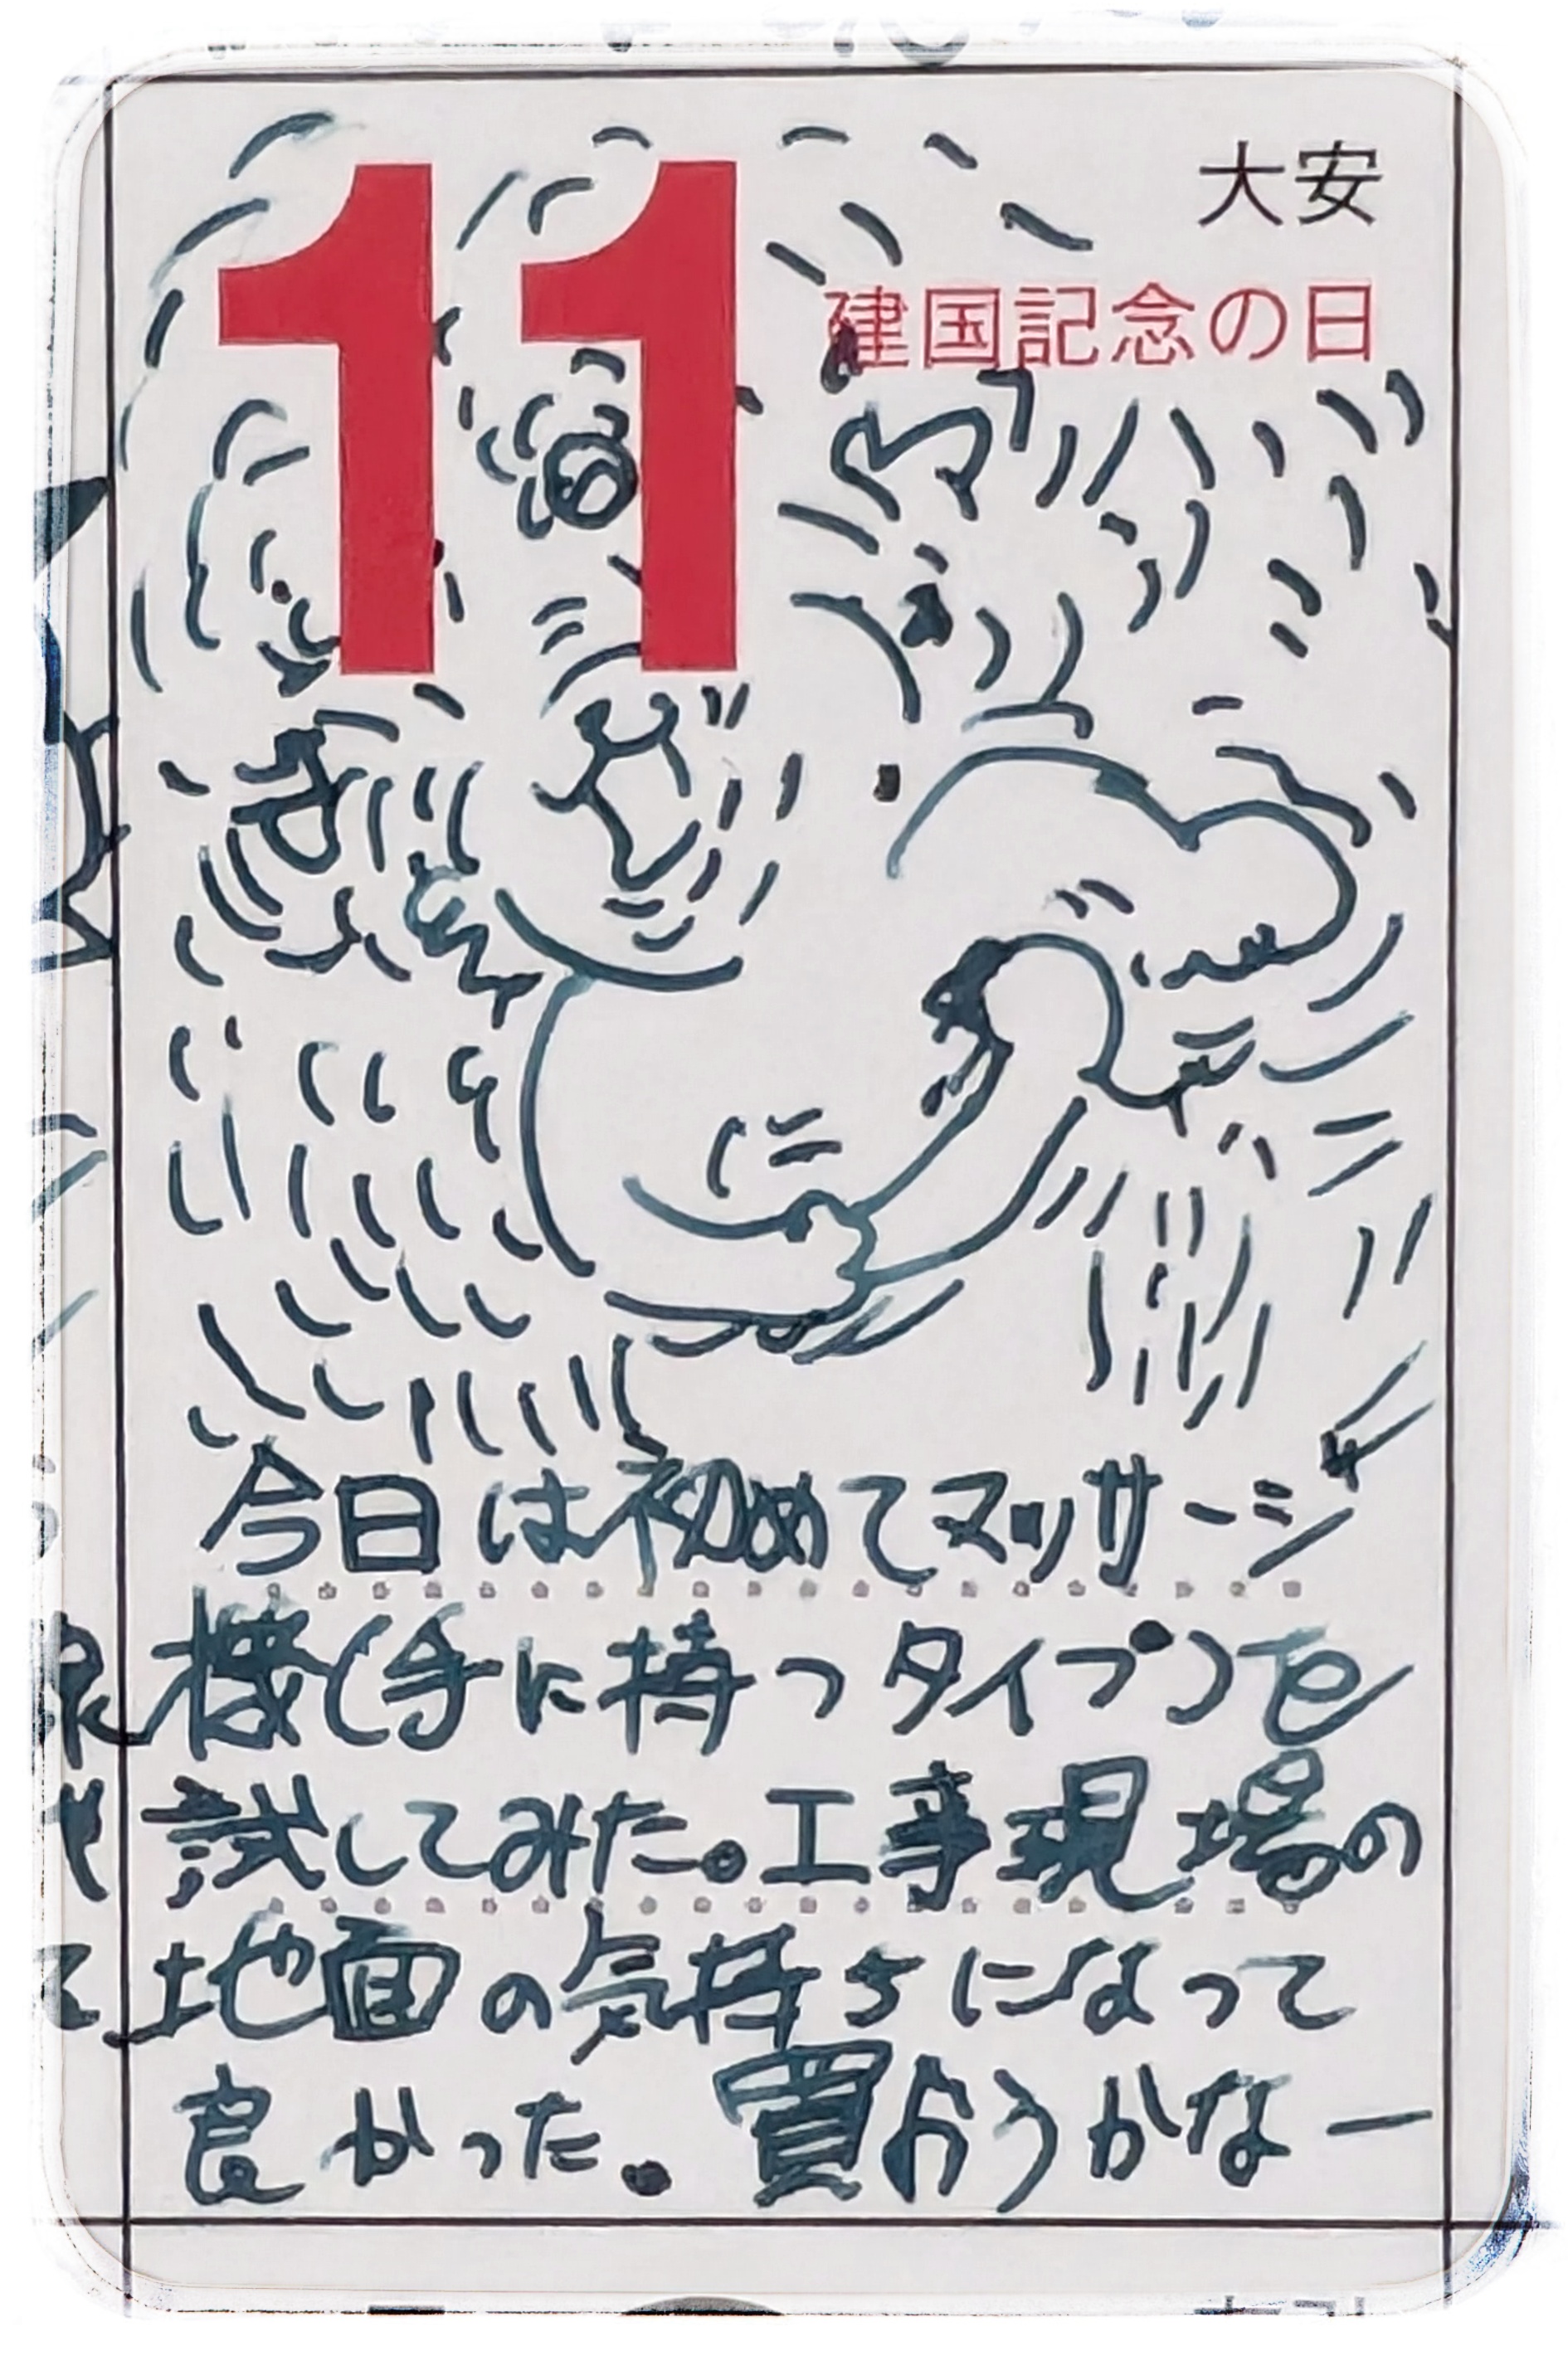 11
大安
建国記念の日
今日は初めてマッサージ
機(手に持つタイプ)を
試してみた。工事現場の
地面の気持ちになって
良かった。買おうかなー